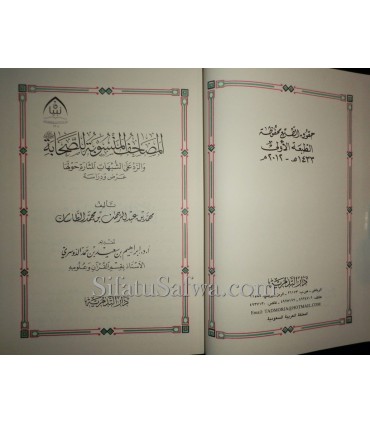 حقوق الطبع محفوظة
الطبعة الأولى
١٤٣٣هـ - ٢٠١٢م
دار التدمرية
Email: TADMORIA@HOTMAIL.COM
المملكة العربية السعودية
المصاحف المنسوبة للصحابة
والرد على الشبهات المثارة حولها
عرض ودراسة
تأليف
محمد بن عبد الرحمن بن محمد الطاسان
تقديم
أ.د. إبراهيم بن سعيد بن حمد الدوسري
الأستاذ بقسم القرآن وعلومه
دار التدمرية
SilatuSalwa.com